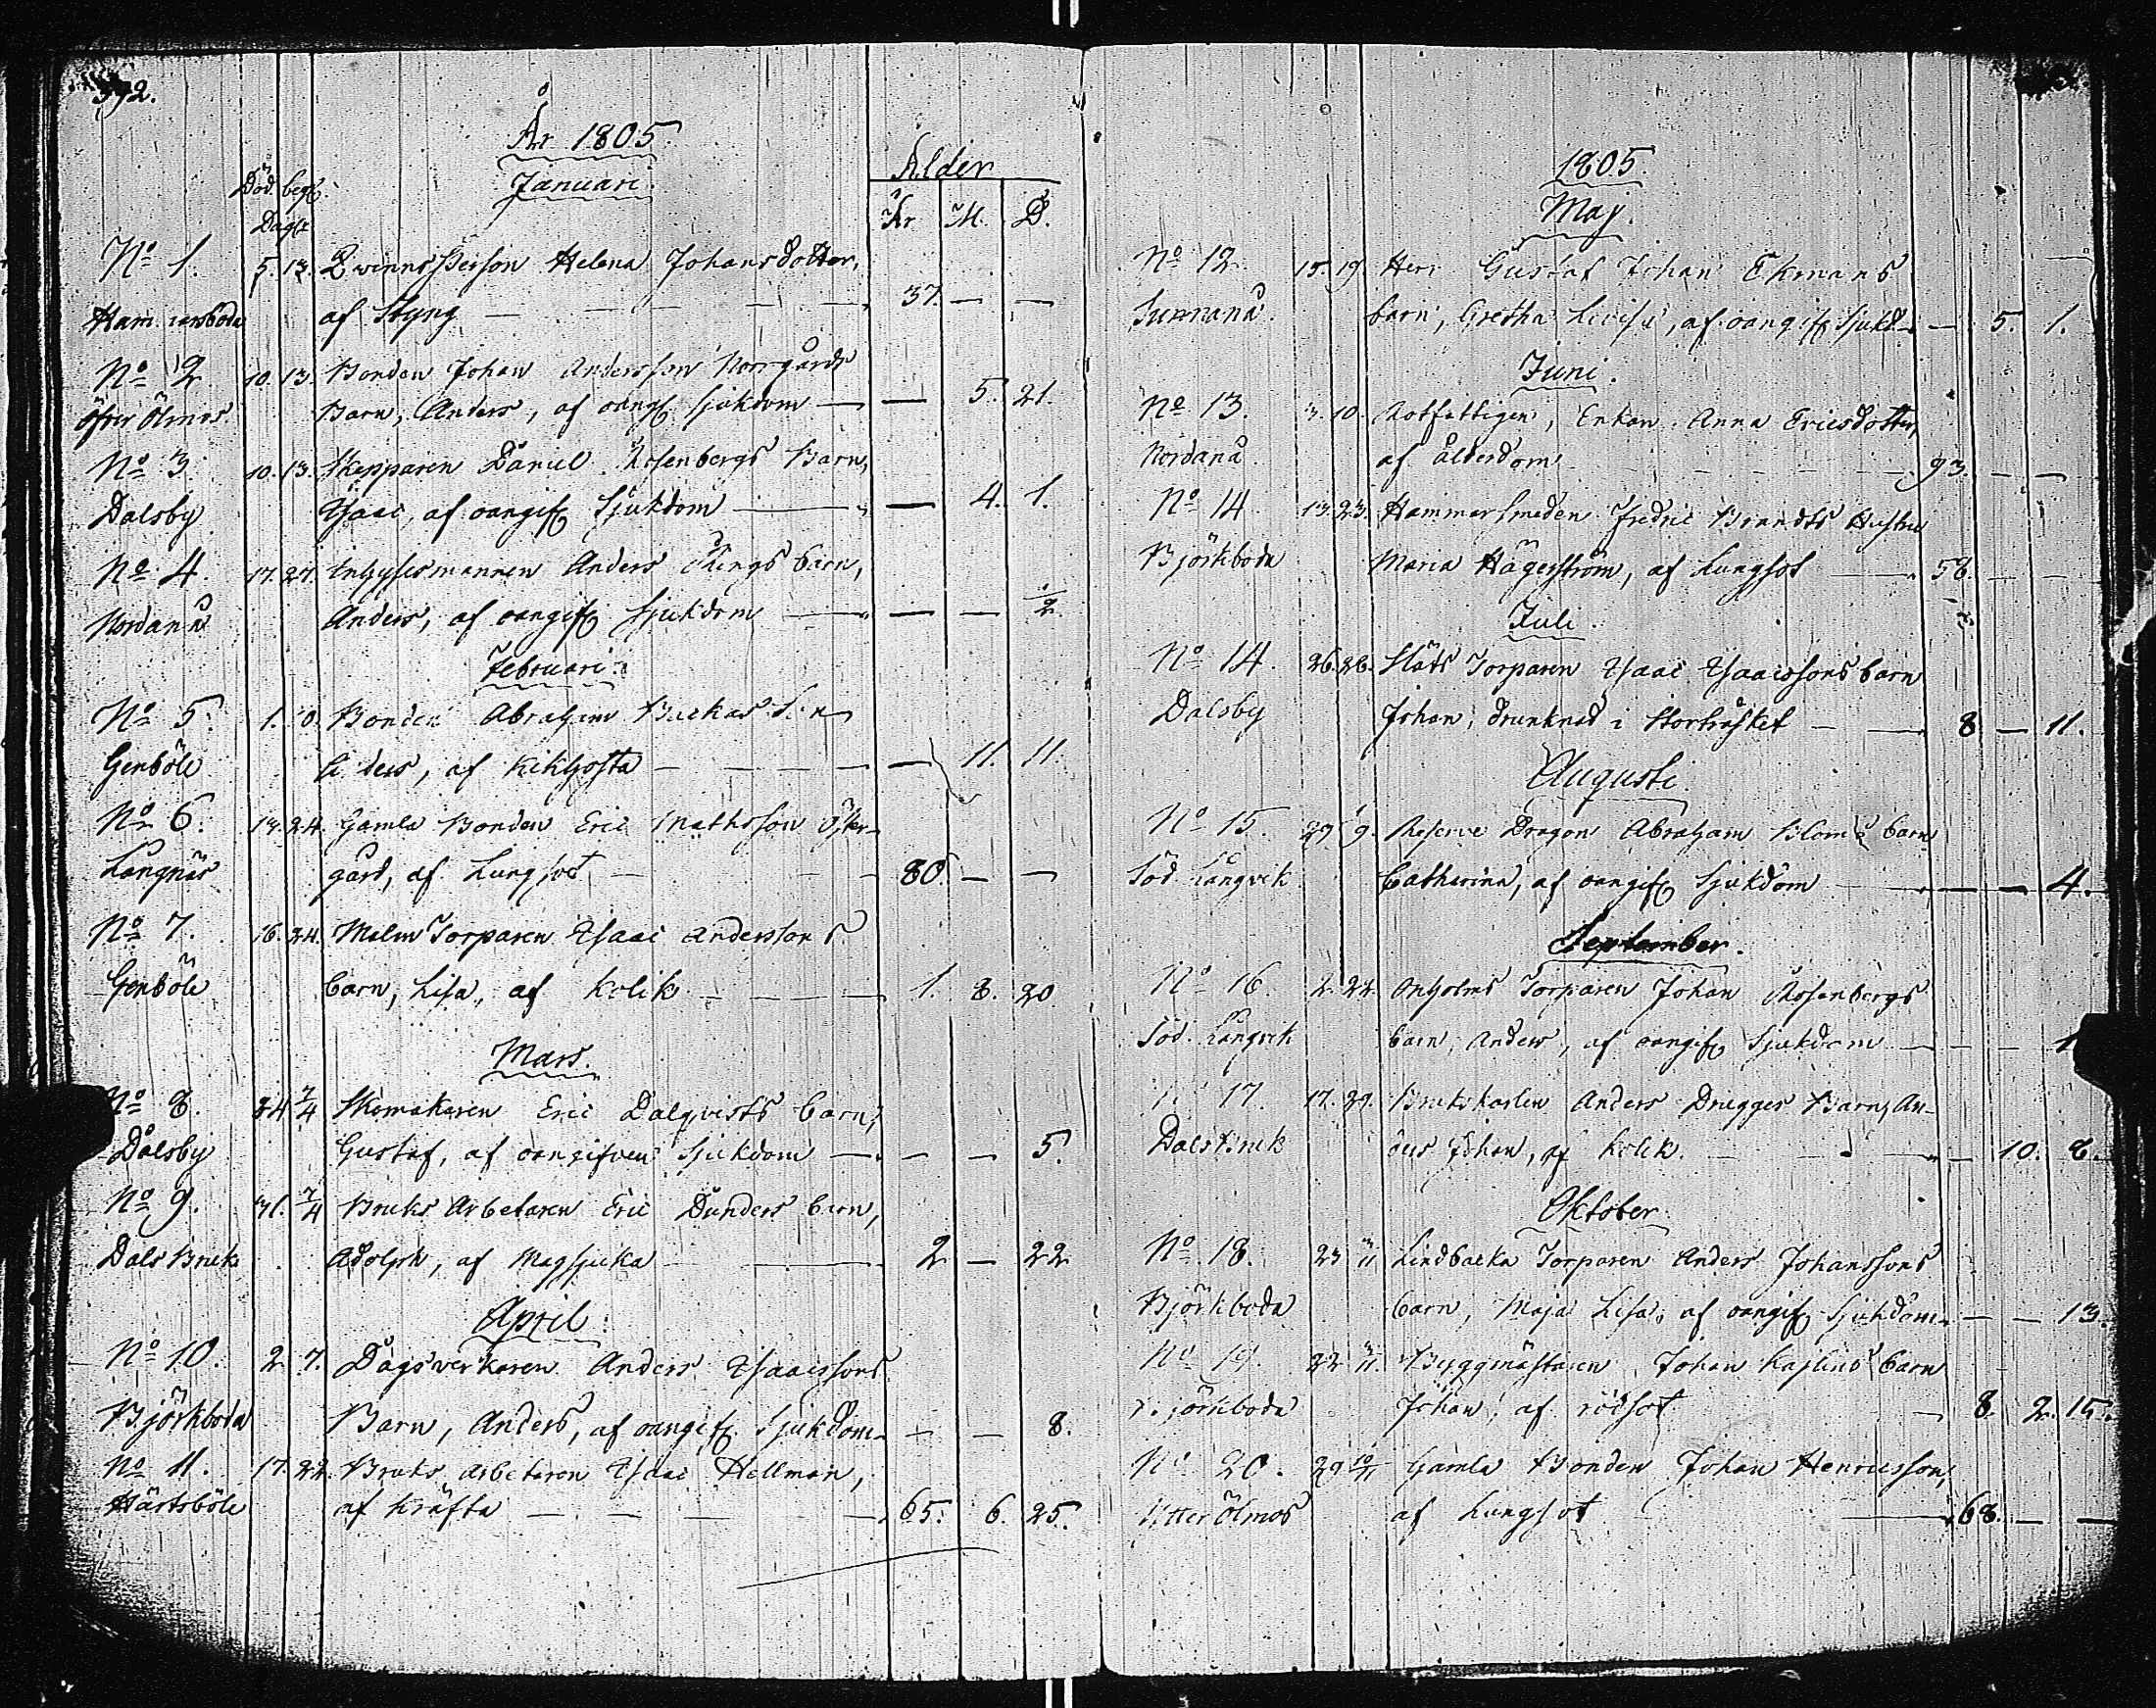 392.
År 1805.
Död. begr. Januari. Ålder
Dagar År M. D.
No 1. 5. 13. Qvinns Person Helena Johansdotter,
Hammarsboda af Styng — — — 37. — —
No 2 10. 13. Bonden Johan Andersson Norrgårds
Öfver Ölmos. Barn, Anders, af oangif. sjukdom — — 5. 21.
No 3 10. 13. Skepparen Daniel Rosenbergs Barn,
Dalsby Isaac, af oangif. Sjukdom — — 4. 1.
No 4. 17. 27. Inhysesmannen Anders Rings barn,
Nordanå Anders, af oangif. Sjukdom — — — ½.
Februari.
No 5. 1. 10. Bonden Abraham Backas
Genböle af kikhosta — — — — 11. 11.
No 6. 13. 24. Gamla Bonden Eric Mathsson Öster-
Långnäs gård, af Lungsot — — 80. — —
No 7. 16. 24. Malm Torparen Isaac Anderssons
Genböle barn, Lisa, af kolik — — — 1. 8. 20
Mars.
No 8. 24 7/4 Skomakaren Eric Dalqvists barn,
Dalsby Gustaf, af oangifven Sjukdom — — — 5.
No 9. 31. 7/4 Bruks Arbetaren Eric Dunders barn,
Dals Bruk Adolph, af Magsjuka — — 2 — 22
April.
No 10. 2 7. Dagsverkaren Anders Isaacssons
Björkboda Barn, Anders, af oangif. Sjukdom — — — 8.
No 11. 17. 22. Bruks arbetaren Isaac Hellman,
Hårtsböle af kräfta — — — — 65. 6. 25.
1805.
Maj.
No 12 15. 19 Herr Gustaf Johan Ekmans
Sunnanå. barn, Gretha Lovisa, af oangif. sjukd. — — 5. 1.
Juni.
No 13. 3. 10. Rotfattigen, Enkan Anna Ericsdotter,
Nordanå af ålderdom — — — — 93. — —
No 14 13. 23. Hammarsmeden Fredric Brandts Hustru
Björkboda Maria Hägerström, af Lungsot — 58 — —
Juli.
No 14. 26. 28. Slåts Torparen Isaac Isaacssons barn
Dalsby Johan, drunknad i Stortråsket — — 8 — 11.
Augusti.
No 15. 29 1/9. Reserve Dragon Abraham Bloms barn
Söd. Långvik Catharina, af oangif. Sjukdom — — — 4.
September.
No 16. 2. 22. Onholms Torparen Johan Rosenbergs
Söd. Långvik barn, Anders, af oangif. Sjukdom — — — 1
No 17. 17. 29. Brukskarlen Anders Drugges Barn, An-
Dals Bruk ders Johan, af kolik. — — 10. 8.
Oktober
No 18. 23 3/11 Lindbacka Torparen Anders Johanssons
Björkboda barn, Maja Lisa, af oangif. Sjukdom — — — 13.
No 19. 22 3/11. Byggmästaren Johan Kaselius barn
Björkboda Johan, af rödsot — 8. 2. 15.
No 20. 29 10/11 Gamla Bonden Johan Henricsson,
Ytter Ölmos af Lungsot — 68. — —